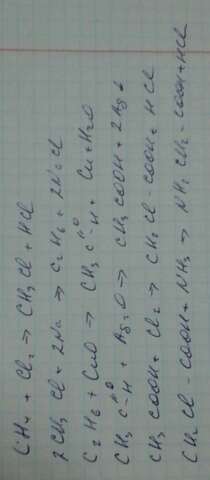 CH4 + Cl2 → CH3Cl + HCl
2CH3Cl + 2Na → C2H6 + 2NaCl
C2H6 + CuO → CH3C=O-H + Cu + H2O
CH3C=O-H + Ag2O → CH3COOH + 2Ag↓
CH3COOH + Cl2 → CH2Cl-COOH + HCl
CH2Cl-COOH + NH3 → NH2CH2-COOH + HCl